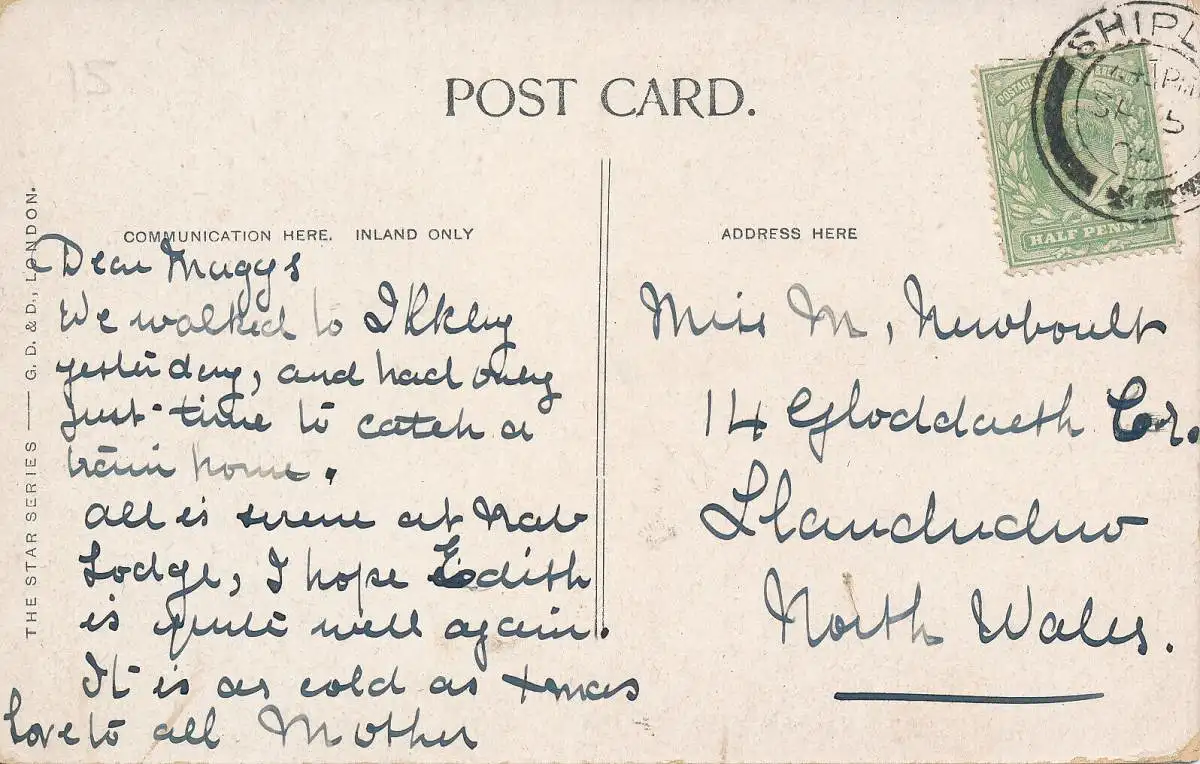 15
POST CARD.
THE STAR SERIES — G. D. & D., LONDON.
COMMUNICATION HERE. INLAND ONLY
Dear Maggs
We walked to Ilkley
yesterday, and had only
just time to catch a
train home.
All is serene at Nab
Lodge, I hope Edith
is quite well again.
It is as cold as Xmas
Love to all Mother
ADDRESS HERE
Miss M, Newboult
14 Gloddaeth Cr.
Llandudno
North Wales.
HALF PENNY
SHIPL
SP 5